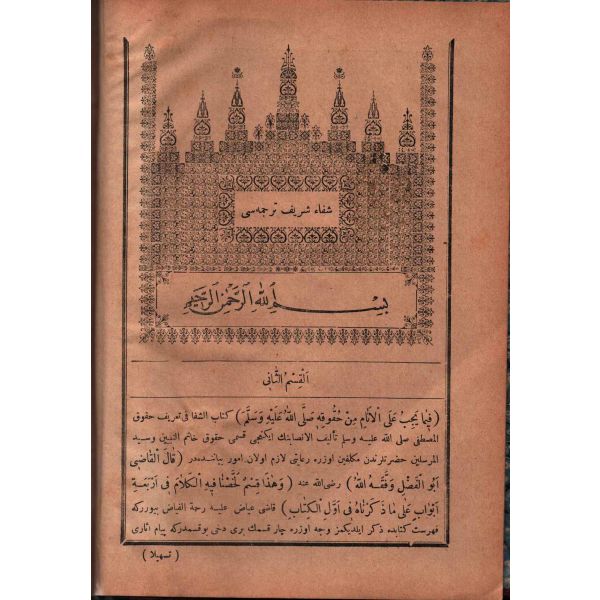 شفاء شريف ترجمه‌سى
بِسْمِ اللهِ الرَّحْمٰنِ الرَّحِيمِ
اَلْقِسْمُ الثَّانِى
(فِيمَا يَجِبُ عَلَى الْاَنَامِ مِنْ حُقُوقِهِ صَلَّى اللهُ عَلَيْهِ وَسَلَّمَ) كتاب الشفا فى تعريف حقوق
المصطفى صلى الله عليه وسلم تأليف الانصابنك ايكنجى قسمى حقوق خاتم النبيين وسيد
المرسلين حضرتلرندن مكلفين اوزره رعايتى لازم اولان امور بياننده‌در (قَالَ الْقَاضِى
اَبُو الْفَضْلِ وَفَّقَهُ اللهُ) رضى الله عنه (وَهٰذَا قِسْمٌ لَخَّصْنَا فِيهِ الْكَلَامَ فِى اَرْبَعَةِ
اَبْوَابٍ عَلَى مَا ذَكَرْنَاهُ فِى اَوَّلِ الْكِتَابِ) قاضى عياض عليه رحمة الفياض بيوررکه
فهرست كتابده ذكر ايلديكمز وجه اوزره چار قسمك برى دخى بوقسمدركه پيام آثارى
(تسهيلا)